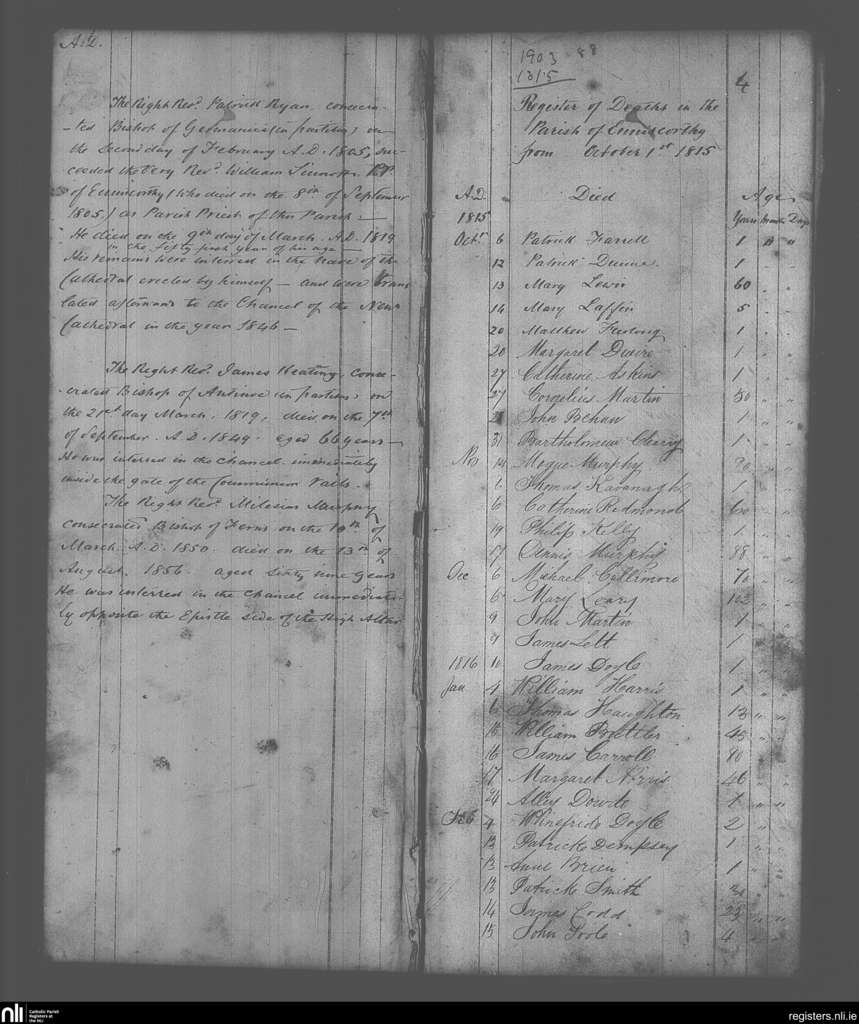 A.D.
The Right Revd. Patrick Ryan consecra-
-ted Bishop of Germanicia (in partibus) on
the second day of February A.D. 1805, suc-
ceeded the Very Revd. William Sinnott P.P.
of Enniscorthy (who died on the 8th of September
1805) as Parish Priest of this Parish.—
He died on the 9th day of March. A.D. 1819
in the fifty first year of his age—
His remains were interred in the nave of the
Cathedral erected by himself— and were trans
lated afterwards to the Chancel of the New
Cathedral in the year 1846—
The Right Revd. James Keating, conse-
-crated Bishop of Antinoe (in partibus) on
the 21st day March, 1819, died on the 7th
of September. A.D. 1849. aged 66 years—
He was interred in the Chancel immediately
inside the gate of the Communion rails.
The Right Revd. Milesius Murphy
consecrated Bishop of Ferns on the 10th of
March A.D. 1850. died on the 13th of
August. 1856. aged sixty nine years
He was interred in the Chancel immediate-
ly opposite the Epistle side of the High Altar
1903 88
1315
4
Register of Deaths in the
Parish of Enniscorthy
from October 1st 1815
A.D. Died Age
1815 Years Months Days
Octr 6 Patrick Farrell 1 " "
12 Patrick Dunne 1
13 Mary Lewis 60
14 Mary Laffin 5
20 Matthew Furlong 1
20 Margaret Dwire 1
27 Catherine Askins 1
27 Cornelius Martin 50
John Bohan 1
31 Bartholomew Cleary 1
Nov 14 Mogue Murphy
6 Thomas Kavanagh 1
6 Catherine Redmond 60
19 Philip Kelly 1
17 Annis Murphy 88
Dec 6 Michael Cullimore 70
6 Mary Leary 102
9 John Martin 1
9 James Lett 1
1816 10 James Doyle 1
Jan 4 William Harris 1
6 Thomas Haughton 13
15 William 45
16 James Carroll 80
17 Margaret Norris 46
24 Alley Dowde 1
Feb 4 Whinefride Doyle 2
13 Patrick Dempsey 1
13 Anne Brien 1
13 Patrick Smith
14 James Codd 25
15 John Poole 4
nli Catholic Parish
Registers at
the NLI
registers.nli.ie